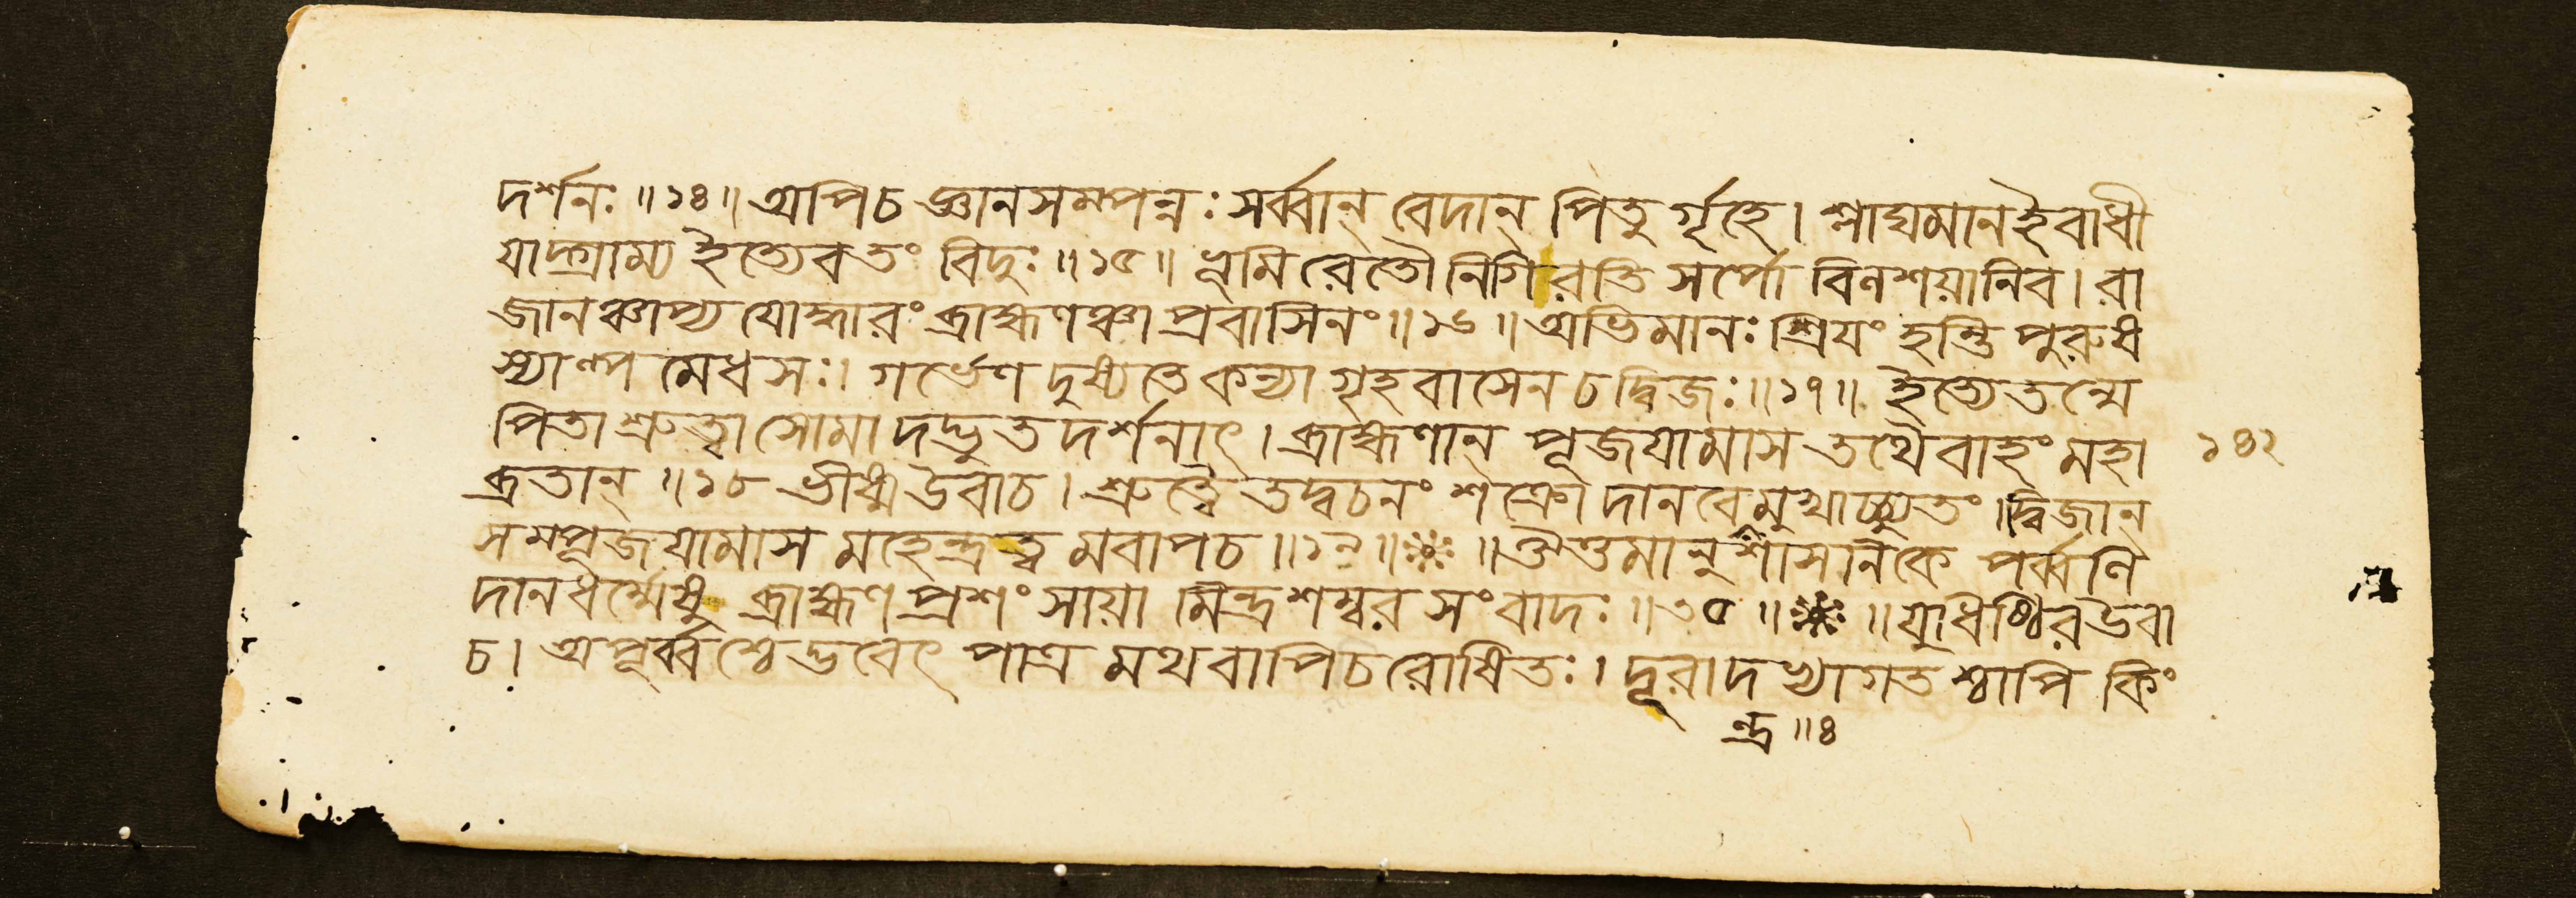 দর্শনঃ ॥১৪॥ অপিচ জ্ঞানসম্পন্নঃ সর্ব্বান্ বেদান্ পিতুর্গৃহে। শ্লাঘ্যমান ইবাধী
যাদ্গ্রাম্য ইত্যেব তং বিদুঃ ॥১৫॥ ভূমিরেতৌ নিগিরতি সর্পো বিলশয়ানিব। রা
জানঞ্চাপ্যযোদ্ধারং ব্রাহ্মণঞ্চাপ্রবাসিনং ॥১৬॥ অভিমানঃ শ্রিয়ং হন্তি পুরুষ
স্যাল্পমেধসঃ। গর্ভেণ দুষ্যতে কন্যা গৃহবাসেন চ দ্বিজঃ ॥১৭॥ ইত্যেতন্মে
পিতা শ্রুত্বা সোমাদদ্ভুতদর্শনাৎ। ব্রাহ্মণান্ পূজয়ামাস তথৈবাহং মহা
ব্রতান্ ॥১৮ ভীষ্ম উবাচ। শ্রুত্বৈতদ্বচনং শক্রো দানবেমুখাচ্চ্যুতং। দ্বিজান্
সম্পূজয়ামাস মহেন্দ্রত্বমবাপ চ ॥১৯॥ ॥ ঔত্তমানুশাসনিকে পর্ব্বণি
দানধর্ম্মেষু ব্রাহ্মণপ্রশংসায়ামিন্দ্রশম্বরসংবাদঃ ॥৩৫॥ ॥ যুধিষ্ঠির উবা
চ। অপূর্ব্বশ্চেদ্ভবেৎ পাত্রমথবাপি চরোষিতঃ। দূরাদভ্যাগতশ্চাপি কিং
ন্দ্র ॥৪
১৪২